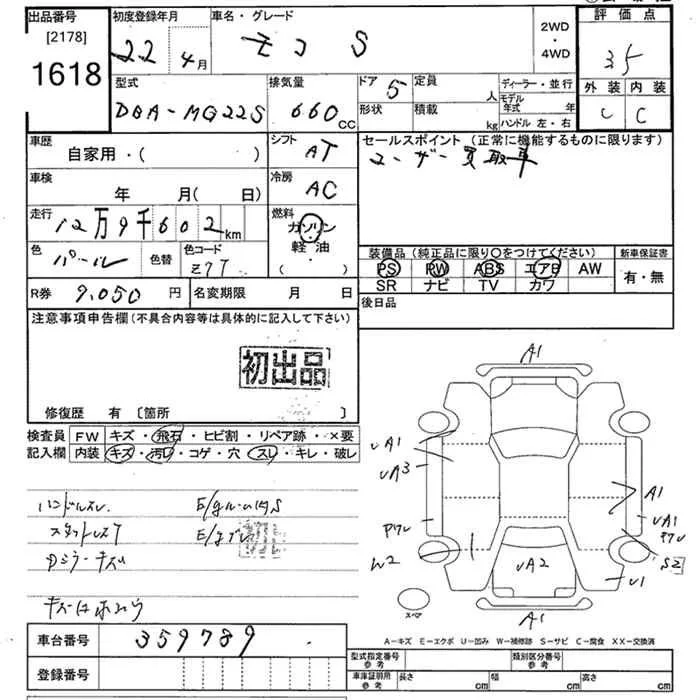 出品番号
[2178]
1618
初度登録年月
22年4月
車名・グレード
モコ S
2WD
・
4WD
評価点
35
外装 内装
C C
型式
DBA-MG22S
排気量
660cc
ドア 5
形状
定員 人
積載 kg
ディーラー・並行
モデル年式 年
ハンドル 左・右
車歴
自家用・( )
シフト AT
車検
年 月( 日)
冷房 AC
走行
12万9千602km
燃料
ガソリン
・
軽油
( )
色 パール
色替
色コード Z7T
R券 9,050円
名変期限 月 日
セールスポイント (正常に機能するものに限ります)
ユーザー買取車
装備品(純正品に限り〇をつけてください)
新車保証書
PS PW ABS エアB AW
SR ナビ TV カワ
有・無
後日品
注意事項申告欄(不具合内容等は具体的に記入して下さい)
初出品
修復歴 有 [箇所 ]
検査員
記入欄
FW キズ・飛石・ヒビ割・リペア跡・×要
内装 キズ・汚レ・コゲ・穴・スレ・キレ・破レ
ハンドルスレ
スタットレスT
Dミラーキズ
A1
UA1
UA3
A1
UA1
W2
UA2
S2
U1
A1
スペア
A-キズ E-エクボ U-凹み W-補修跡 S-サビ C-腐食 XX-交換済
車台番号 359789
登録番号
型式指定番号
参考
類別区分番号
参考
車庫証明用
参考
長さ cm 幅 cm 高さ cm